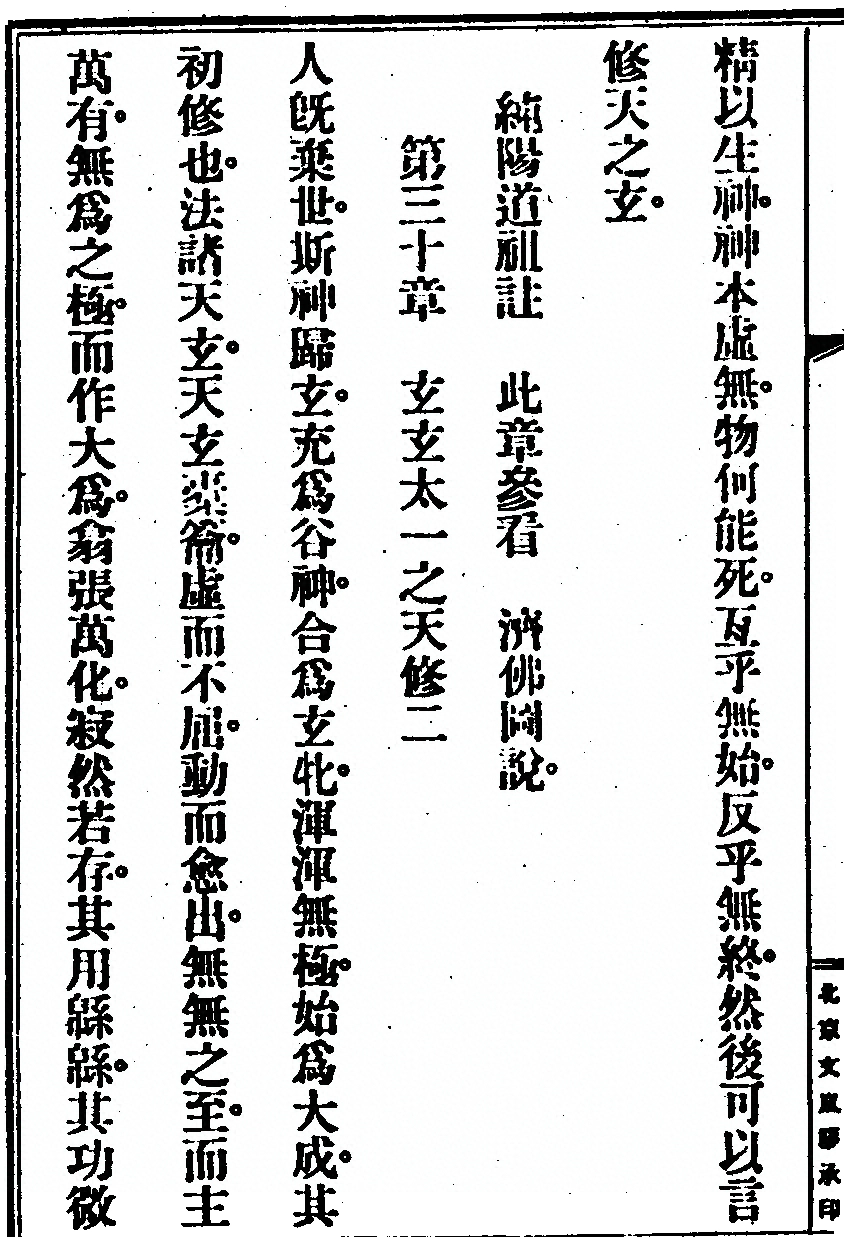 精以生神。神本虛無。物何能死。亙乎無始。反乎無終。然後可以言
修天之玄。
純陽道祖註　此章參看　濟佛圖說。
第三十章　玄玄太一之天修二
人旣棄世。斯神歸玄。充爲谷神。合爲玄牝。渾渾無極。始爲大成。其
初修也。法諸天玄。天玄橐籥。虛而不屈。動而愈出。無無之至。而主
萬有。無爲之極。而作大爲。翕張萬化。寂然若存。其用緜緜。其功微
北京文嵐簃承印